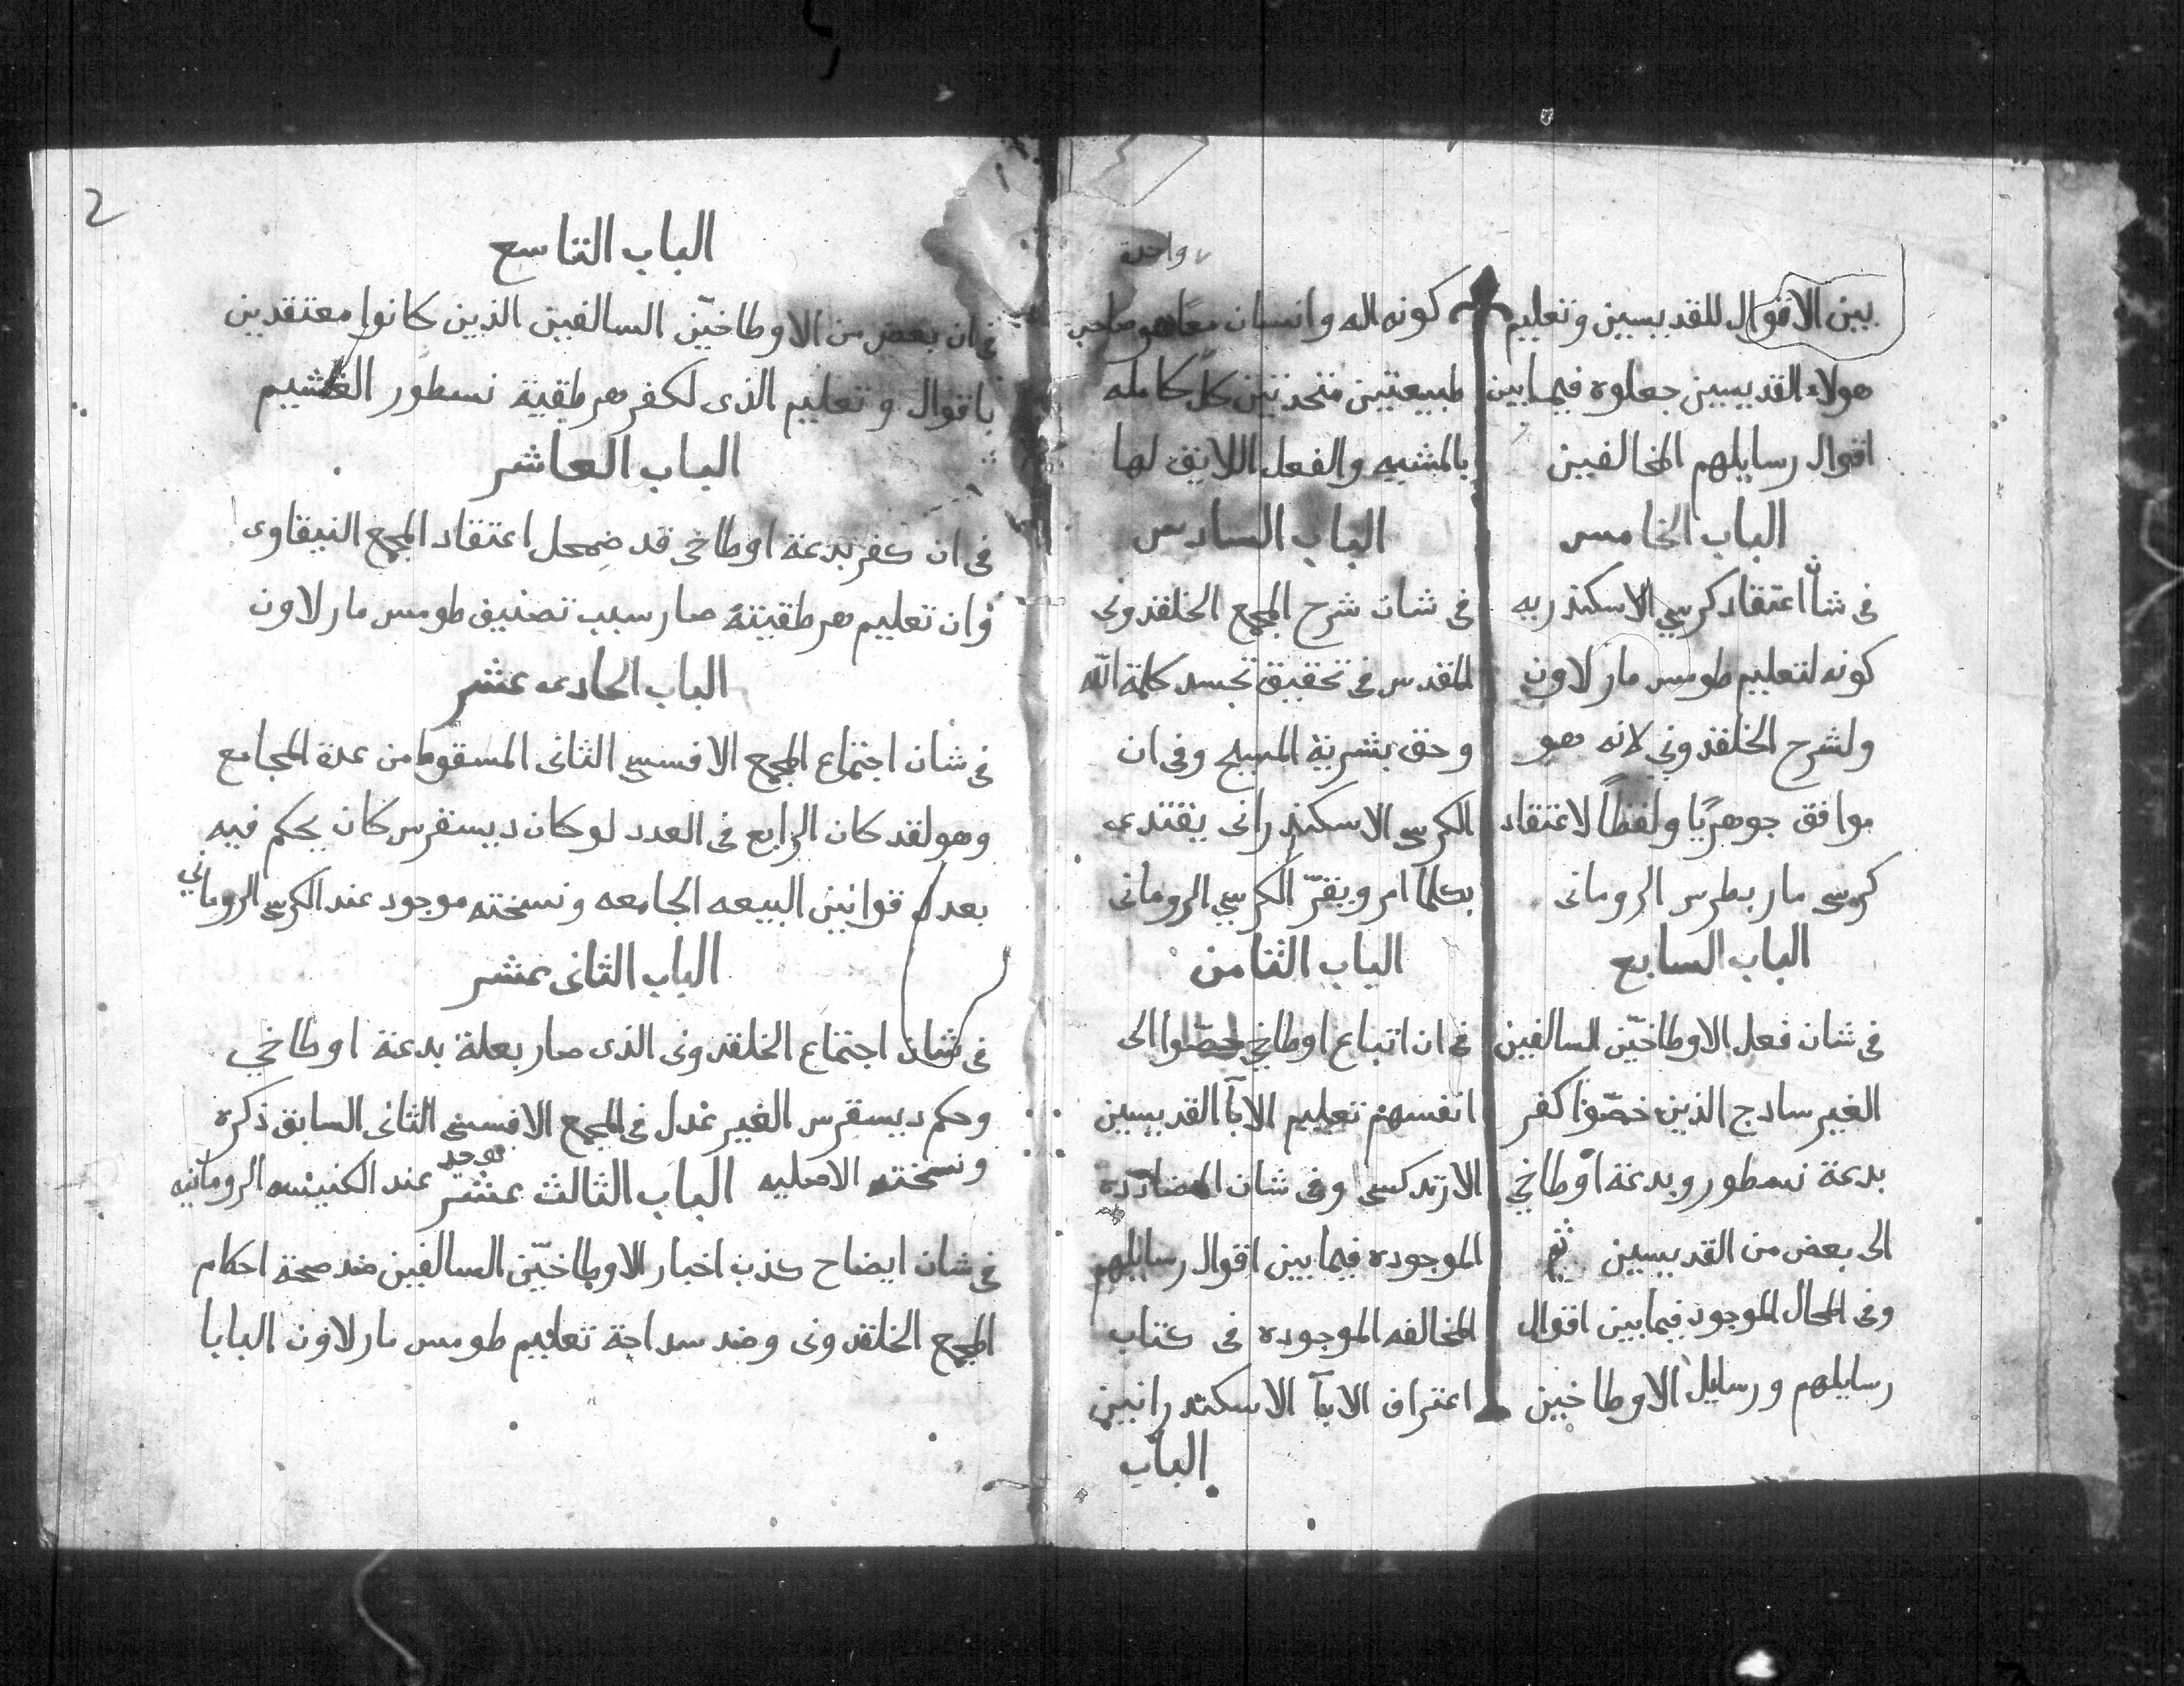 بين الاقوال للقديسين وتعليم
هولاء القديسين جعلوه فيمابين
اقوال رسايلهم المخالفين
الباب الخامس
فى شأن اعتقاد كرسي الاسكندريه
كونه لتعليم طومس مار لاون
ولشرح الخلقدوني لانه هو
موافق جوهريًا ولفظاً لاعتقاد
كرسى مار بطرس الرومانى
الباب السابع
فى شان فعل الاوطاخيّن السالفين
الغير سادج الذين خصّوا كفر
بدعة نسطور وبدعة اوطاخي
الى بعض من القديسين ثم
وفى المحال الموجود فيمابين اقوال
رسايلهم ورسايل الاوطاخيين
واحدة
كونه اله وانسان معًا هو صاحب
طبيعتين متحدتين كلّ كامله
بالمشييه والفعل اللايق لها
الباب السادس
فى شان شرح المجمع الخلقدونى
المقدس فى تحقيق تجسد كلمة اللّه
وحق بشرية المسيح وفى ان
الكرسى الاسكندرانى يقتدى
بكلما امر ويقرّ الكرسي الرومانى
الباب الثامن
فى ان اتباع اوطاخي خصّوا الى
انفسهم تعليم الابآ القديسين
الارتدكسى وفى شان المضاددة
الموجوده فيمابين اقوال رسايلهم
المخالفه الموجوده فى كتاب
اعتراف الابآ الاسكندرانيين
الباب
2
الباب التاسع
فى ان بعض من الاوطاخيّن السالفين الذين كانوا معتقدين
باقوال وتعليم الذى لكفر هرطقية نسطور الغشيم
الباب العاشر
فى ان كفر بدعة اوطاخى قد ضمحل اعتقاد المجمع النيقاوى
وان تعليم هرطقيته صار سبب تصنيف طومس مار لاون
الباب الحادى عشر
فى شان اجتماع المجمع الافسسى الثانى المسقوط من عدة المجامع
وهو لقد كان الرابع فى العدد لو كان ديسقرس كان يحكم فيه
بعدل قوانين البيعه الجامعه ونسخته موجود عند الكرسى الروماني
الباب الثانى عشر
فى شان اجتماع الخلقدونى الذى صار بعلة بدعة اوطاخي
وحكم ديسقرس الغير عدل فى المجمع الافسسى الثانى السابق ذكره
ونسخته الاصليه موجد عند الكنيسه الرومانيه
الباب الثالث عشر
فى شان ايضاح كذب اخبار الاوطاخيّن السالفين ضد صحة احكام
المجمع الخلقدونى وضد سداجة تعليم طومس مار لاون البابا